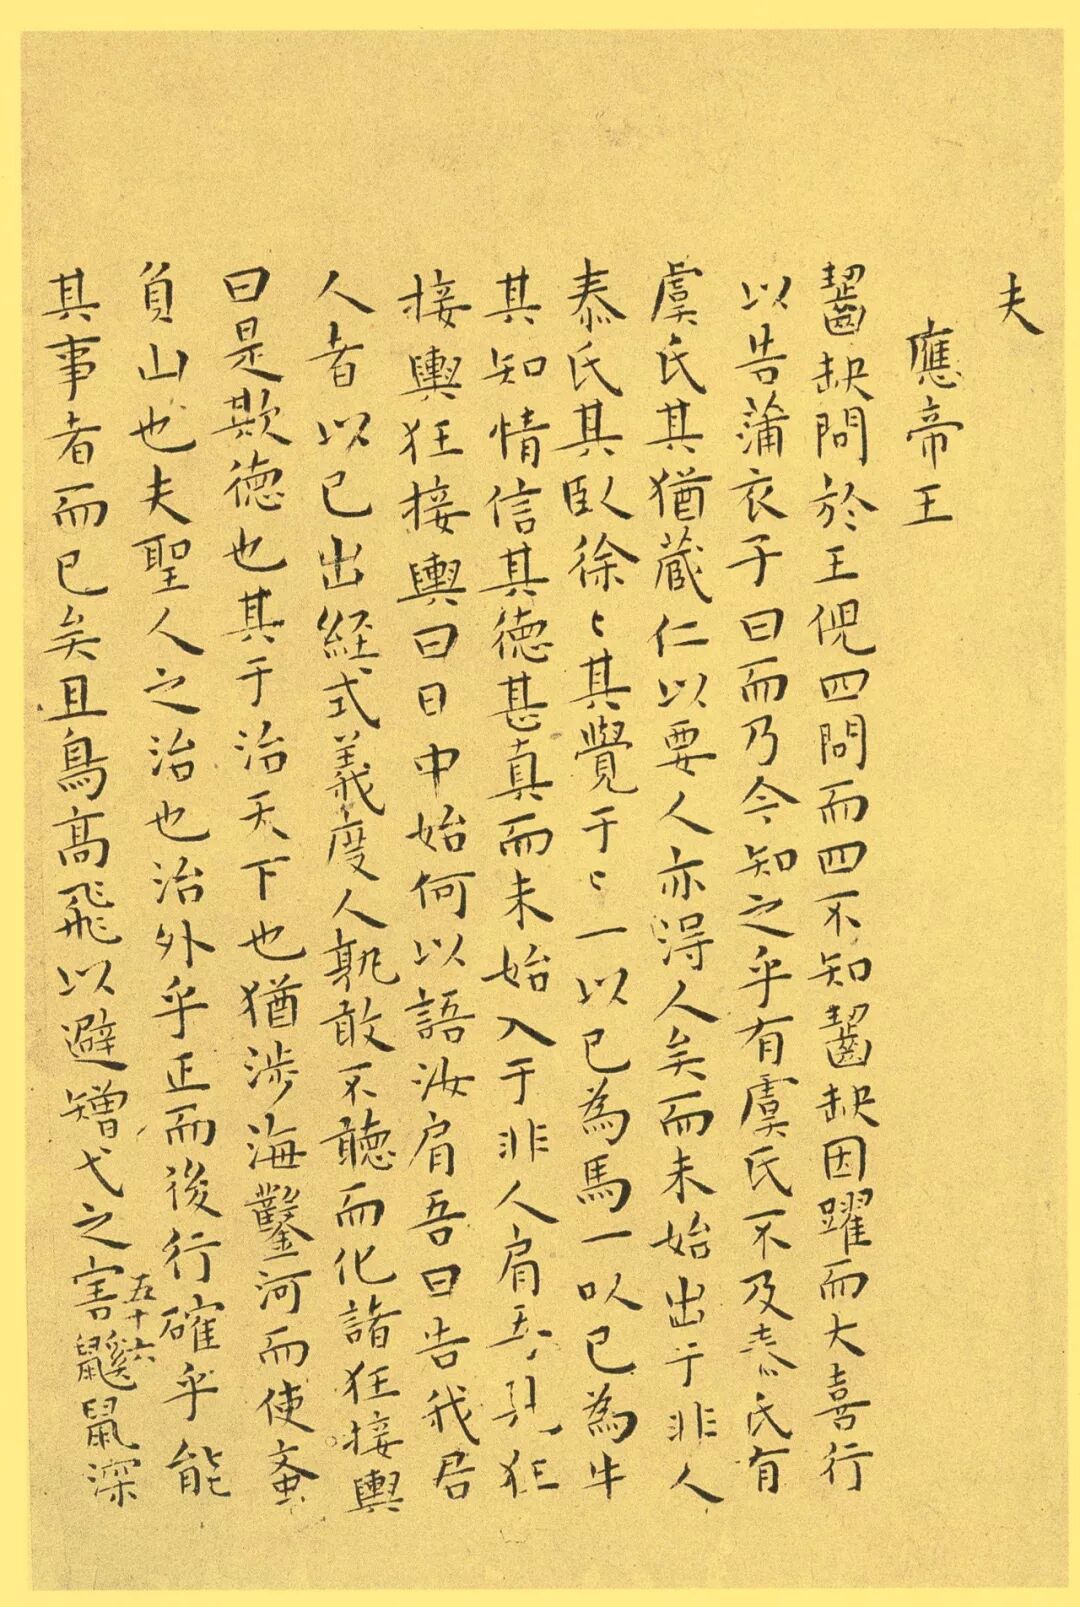 夫
應帝王
齧缺問於王倪四問而四不知齧缺因躍而大喜行
以告蒲衣子曰而乃今知之乎有虞氏不及泰氏有
虞氏其猶藏仁以要人亦得人矣而未始出于非人
泰氏其臥徐〻其覺于〻一以已為馬一以已為牛
其知情信其德甚真而未始入于非人肩吾見狂
接輿狂接輿曰日中始何以語汝肩吾曰告我居
人者以已出經式義度人孰敢不聽而化諸狂接輿
曰是欺德也其于治天下也猶涉海鑿河而使蚉
負山也夫聖人之治也治外乎正而後行確乎能
其事者而已矣且鳥高飛以避矰弋之害鼷鼠深
五十六